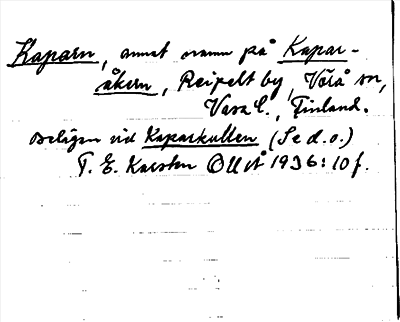 Kaparn, annat namn på Kapar-
åkern, Reipelt by, Vörå sn,
Vasa l., Finland.
Belägen vid Kaparkullen (Se d.o.)
T. E. Karsten OUÅ 1936:10 f.